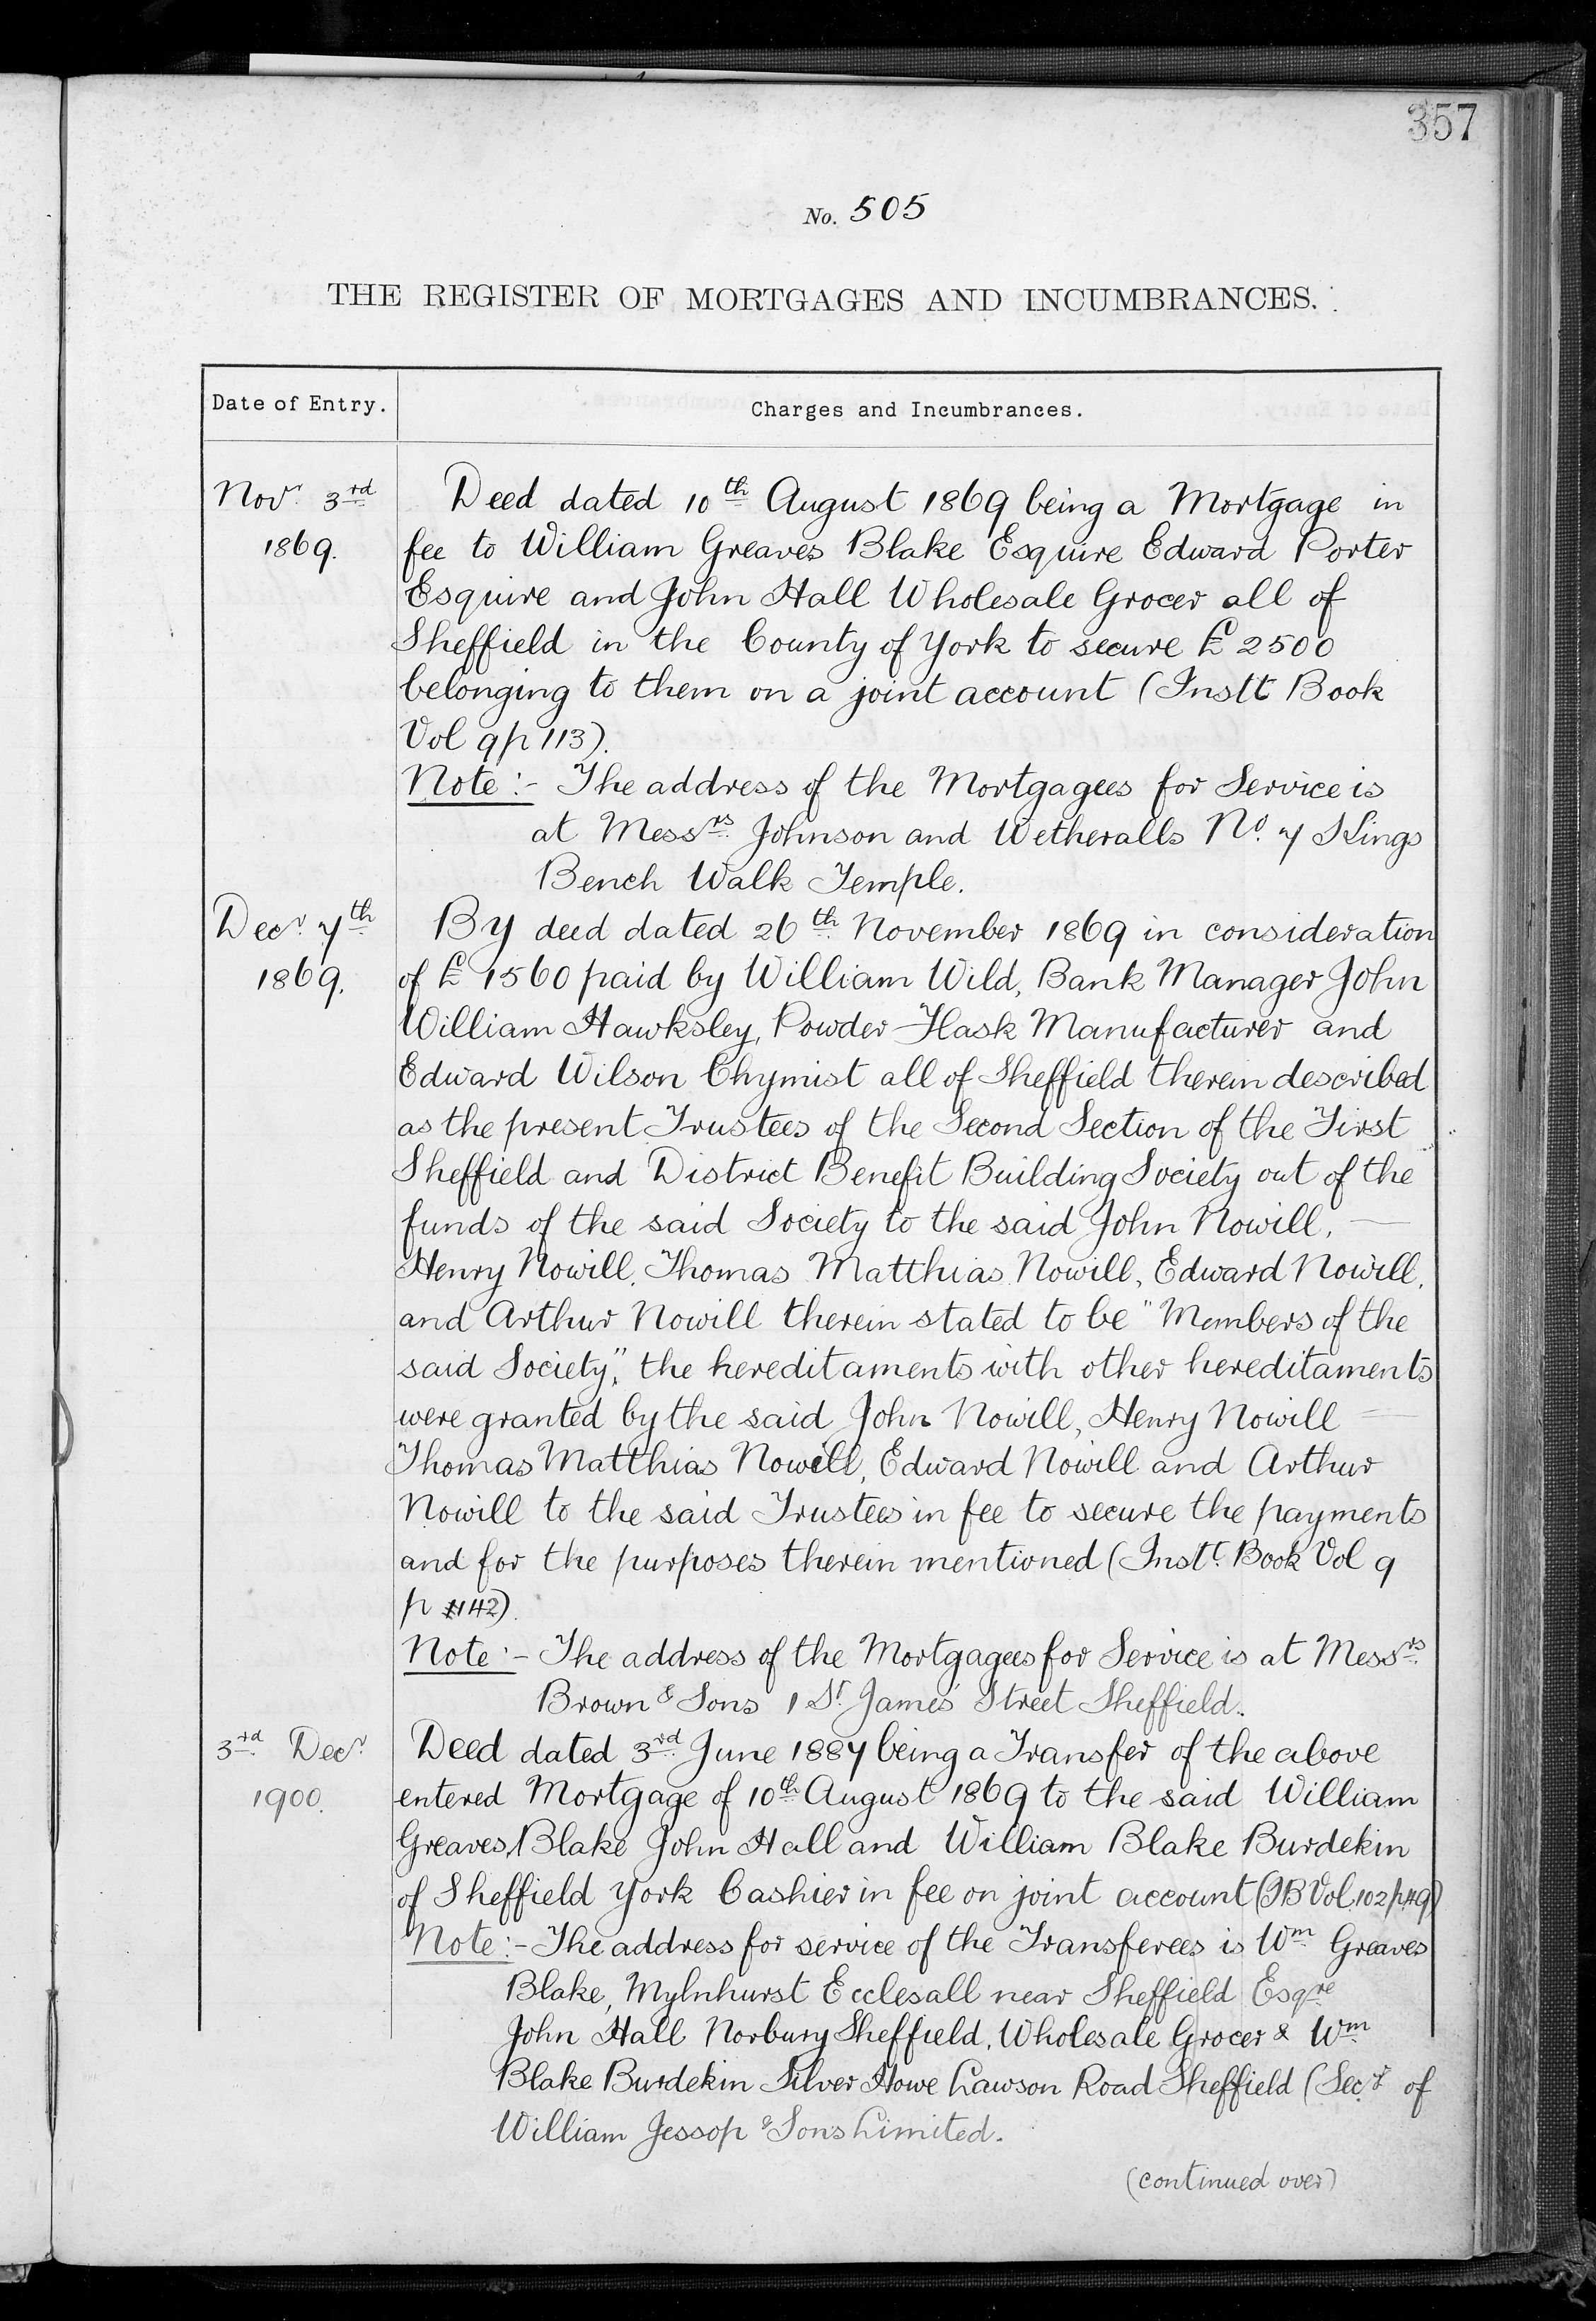 357
No. 505
THE REGISTER OF MORTGAGES AND INCUMBRANCES.
Date of Entry.
Charges and Incumbrances.
Novr. 3rd
1869.
Deed dated 10th August 1869 being a Mortgage in
fee to William Greaves Blake Esquire Edward Porter
Esquire and John Hall Wholesale Grocer all of
Sheffield in the County of York to secure £2500
belonging to them on a joint account (Instt Book
Vol 9 p 113).
Note:- The address of the Mortgagees for Service is
at Messrs. Johnson and Wetheralls No. 7 Kings
Bench Walk Temple.
Decr. 7th
1869.
By deed dated 26th November 1869 in consideration
of £1560 paid by William Wild, Bank Manager John
William Hawksley, Powder-Flask Manufacturer and
Edward Wilson Chymist all of Sheffield therein described
as the present Trustees of the Second Section of the First
Sheffield and District Benefit Building Society out of the
funds of the said Society to the said John Nowill, —
Henry Nowill, Thomas Matthias Nowill, Edward Nowill,
and Arthur Nowill therein stated to be "Members of the
said Society," the hereditaments with other hereditaments
were granted by the said John Nowill, Henry Nowill —
Thomas Matthias Nowill, Edward Nowill and Arthur
Nowill to the said Trustees in fee to secure the payments
and for the purposes therein mentioned (Instt. Book Vol 9
p 142).
Note:- The address of the Mortgagees for Service is at Messrs.
Brown & Sons 1 St. James' Street Sheffield.
3rd. Decr.
1900.
Deed dated 3rd. June 1887 being a Transfer of the above
entered Mortgage of 10th August 1869 to the said William
Greaves, Blake John Hall and William Blake Burdekin
of Sheffield York Cashier in fee on joint account (IB Vol. 102 p. 49)
Note:- The address for service of the Transferees is Wm Greaves
Blake, Mylnhurst Ecclesall near Sheffield Esqre
John Hall Norbury Sheffield, Wholesale Grocer & Wm
Blake Burdekin Silver Howe Lawson Road Sheffield (Secy of
William Jessop & Sons Limited.
(continued over)